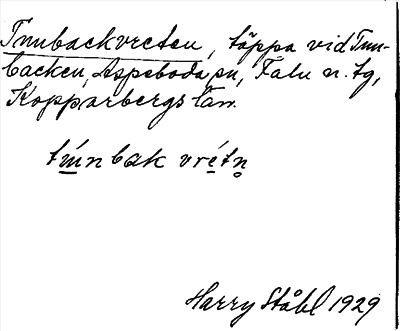 Tunbackvreten, täppa vid Tun-
backen, Aspeboda sn, Falu n. tg,
Kopparbergs län.
tùnbak vrétn̥
Harry Ståhl 1929